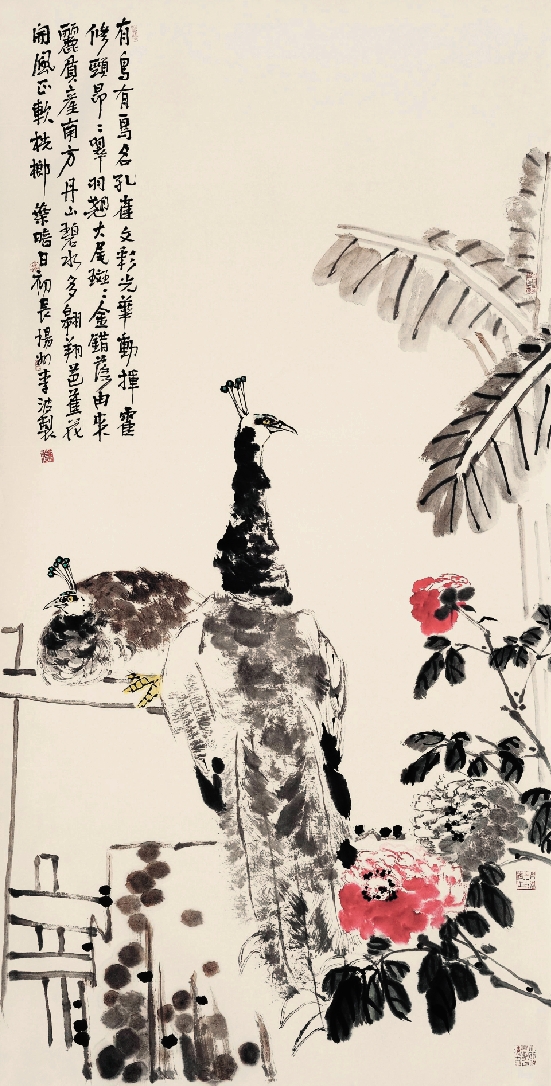 有鳥有鳥名孔雀文彩光華動揮霍
修頸昂〻翠羽翹大尾斑〻金錯落由來
麗質產南方丹山碧水多翱翔芭蕉花
開風正軟桄榔葉暗日初長揚州李波製